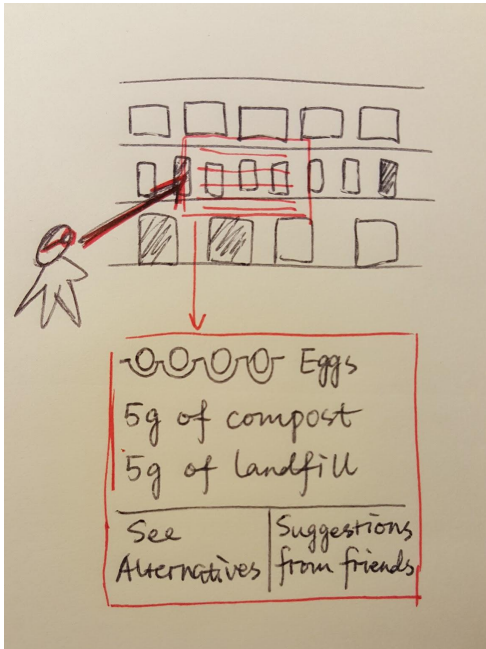 Eggs
5g of compost
5g of landfill
See
Alternatives
Suggestions
from friends